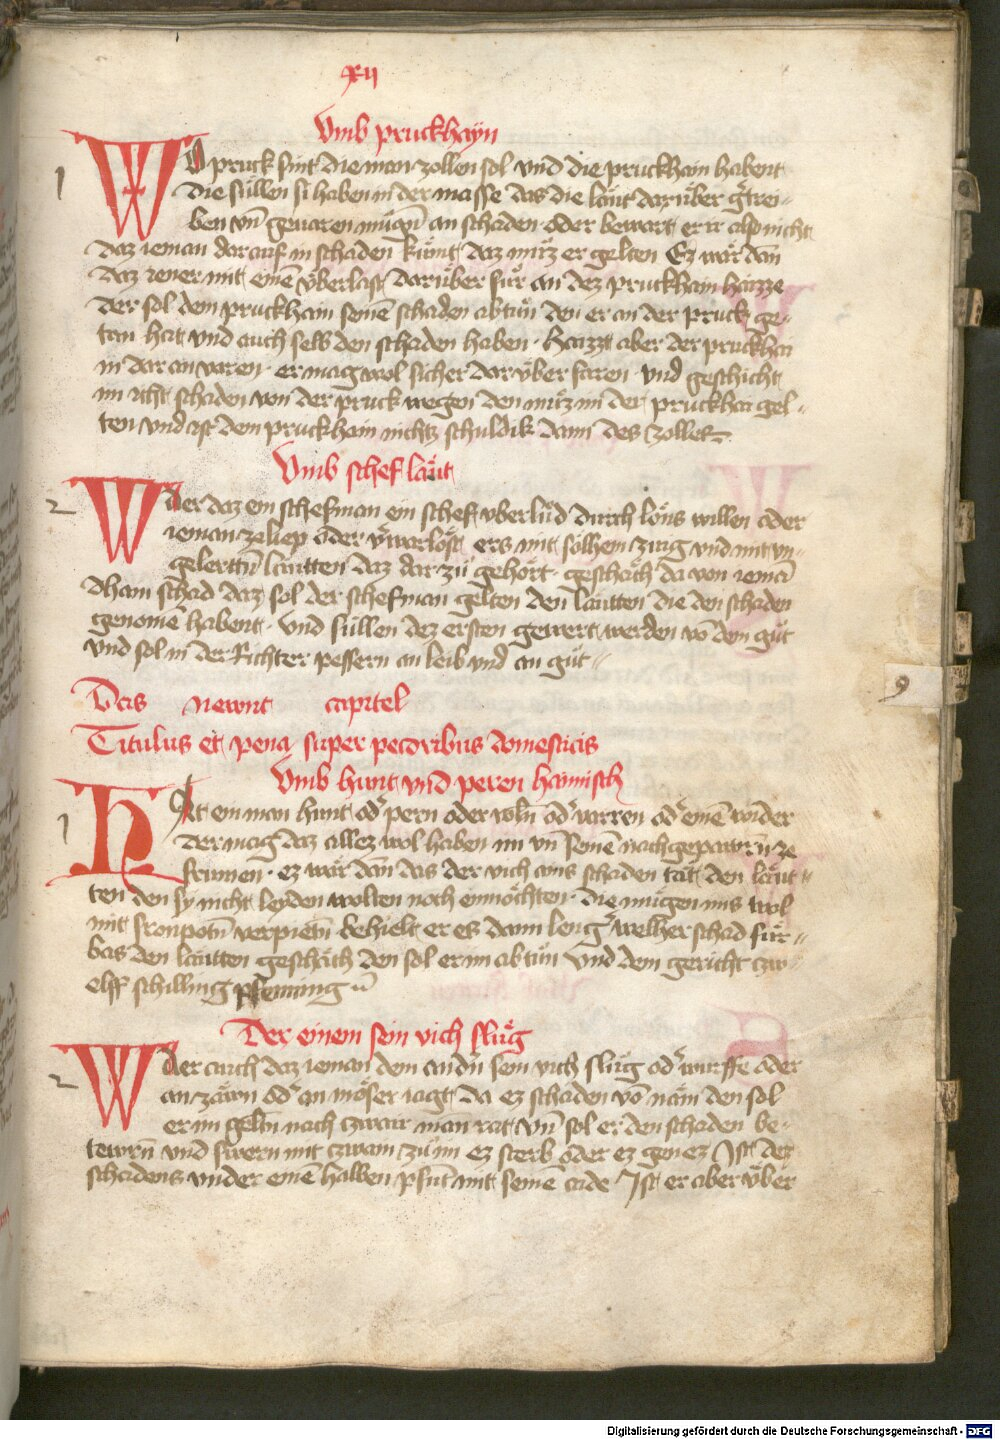 xij
Vmb pruckhäyn
1 Wo pruck sint die man zollen sol vnd die pruckhain habent
die süllen si haben in der masse das die läut darüber getrei-
ben vnd geuaren mügn an schaden oder bewart er ir also nicht
daz ieman darauf in schaden kümt daz müz er gelten Ez wär dan
daz iener mit einē vberlast darüber für an dez pruckhain haizze
der sol dem pruckhain seinē schaden abtün den er an der pruck ge-
tan hat vnd auch selb den schaden haben Haizzt aber der pruckhai
in dar an varen er mag wol sicher darüber faren vnd geschicht
im icht schaden von der pruck wegen den müz im der pruckhai gel-
ten vnd ist dem pruckhain nichtz schuldik dann des zolles
Vmb schef läut
2 Wäer daz ein schefman ein schef vberlüd durch löns willen oder
ieman zeliep oder verwarlöst ers mit sölhem zeug vnd mit vn-
gelertten läutten daz dar zü gehört geschäch da von iemā
dhain schad daz sol der schefman gelten den läutten die den schaden
genomē habent vnd süllen dez ersten gewert werden vō dem güt
vnd sol in der Richter pessern an leib vnd an güt
Das newnt capitel
Titulus et pena super pecoribus domesticis
9
Vmb hunt vnd peren haimisch
1 Hat ein man hunt od' pern oder woln od' varren od' einē winder
der mag daz allez wol haben im vn seinē nachgepawrn ze
frumen ez wär dan das der vich ains schaden tät den läut-
ten den sy nicht leyden wolten noch enmöchten die mügen ims wol
mit fronpotn verpieten behielt er es dann leng' welher schad für-
bas den läutten geschäch den sol er im abtün vnd dem gericht czw-
elff schilling pfenning
Der einem sein vich slüg
2 Wäer auch daz ieman dem andn sein vich slüg od' wurffe oder
an zäwn od' an möser iagt da ez schaden vō näm den sol
er im gelten nach zwair man rat vn sol er den schaden be-
tewrn vnd swern mit czwain zü im ez sterb oder ez genez Ist dez
schadens vnder einē halben pfunt mit seinē aide Ist er aber vber
Digitalisierung gefördert durch die Deutsche Forschungsgemeinschaft - DFG